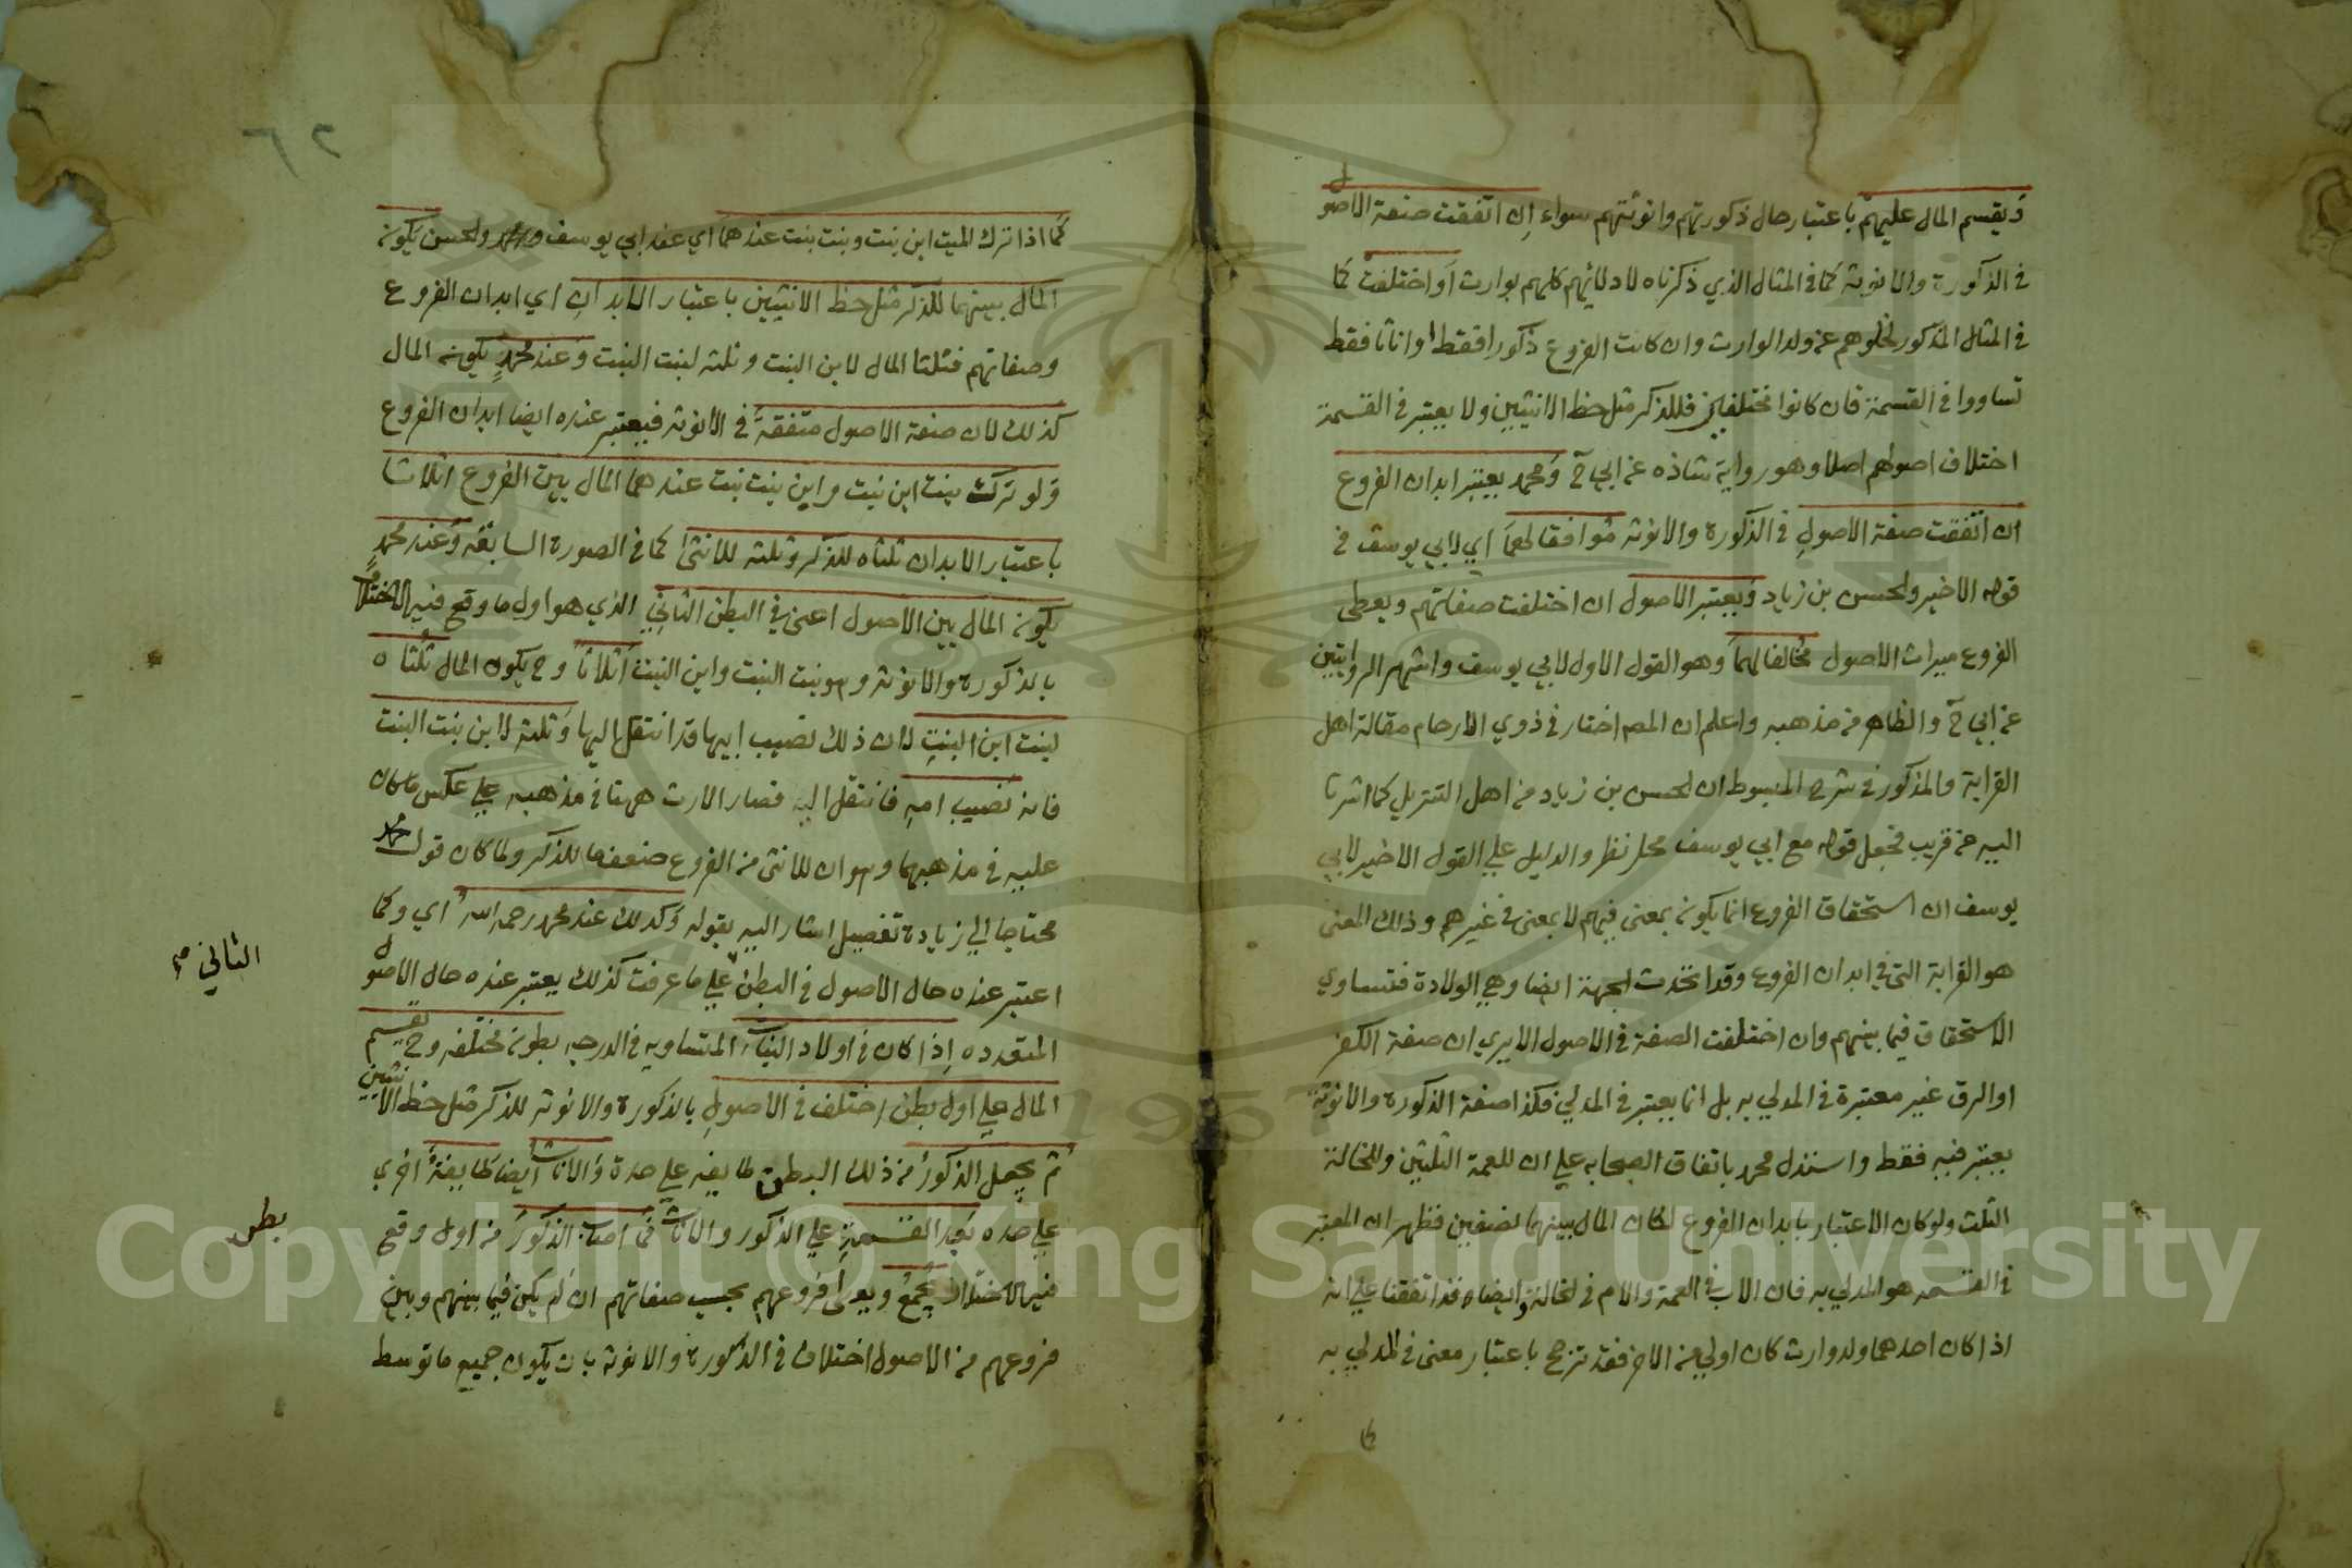 ويقسم المال عليهم باعتبار حال ذكورتهم وانوثتهم سواء ان اتفقت صفة الاصول
في الذكورة والانوثة كما في المثال الذي ذكرناه لادلائهم كلهم بوارث او اختلفت كما
في المثال المذكور لخلوهم عن ولد الوارث وان كانت الفروع ذكورا فقط او اناثا فقط
تساووا في القسمة فان كانوا مختلفين فللذكر مثل حظ الانثيين ولا يعتبر في القسمة
اختلاف اصولهم اصلا وهو رواية شاذه عن ابي ح ومحمد يعتبر ابدان الفروع
ان اتفقت صفة الاصول في الذكورة والانوثه موافقا لهما اي لابي يوسف في
قوله الاخير ولحسن بن زياد ويعتبر الاصول ان اختلفت صفاتهم ويعطى
الفروع ميراث الاصول مخالفا لهما وهو القول الاول لابي يوسف واشهر الروايتين
عن ابي ح والظاهر من مذهبه واعلم ان المصم اختار في ذوي الارحام مقالة اهل
القرابة والمذكور في شرح المبسوط ان لحسن بن زياد من اهل التنزيل كما اشرنا
اليه عن قريب فجعل قوله مع ابي يوسف محل نظر والدليل علي القول الاخير لابي
يوسف ان استحقاق الفروع انما يكون بمعنى فيهم لا بمعنى في غيرهم وذلك المعنى
هو القرابة التي في ابدان الفروع وقد اتحدت لجهة ايضا وهي الولادة فتساوي
الاستحقاق فيما بينهم وان اختلفت الصفة في الاصول الا يري ان صفة الكفر
او الرق غير معتبرة في المدلي به بل انما يعتبر في المدلي فكذا صفة الذكورة والانوثة
يعتبر فيه فقط واستدل محمد باتفاق الصحابه علي ان للعمة الثلثين وللخالة
الثلث ولو كان الاعتبار بابدان الفروع لكان المال بينهما نصفين فظهر ان المعتبر
في القسمه هو المدلي به فان الاب في العمة والام في لخالة وايضا قد اتفقنا علي انه
اذا كان احدهما ولد وارث كان اولي من الاخر فقد ترجح باعتبار معنى في المدلي به
٦٢
كما اذا ترك الميت ابن بنت وبنت بنت عندهما اي عند ابي يوسف ولحسن يكون
المال بينهما للذكر مثل حظ الانثيين باعتبار الابدان اي ابدان الفروع
وصفاتهم فثلثا المال لابن البنت وثلثه لبنت البنت وعند محمد يكون المال
كذلك لان صفة الاصول متفقة في الانوثه فيعتبر عنده ايضا ابدان الفروع
ولو ترك بنت ابن بنت وابن بنت بنت عندهما المال بين الفروع اثلاثا
باعتبار الابدان ثلثاه للذكر وثلثه للانثى كما في الصورة السابقه وعند محمد
يكون المال بين الاصول اعني في البطن الثاني الذي هو اول ما وقع فيه الاختلاف
بالذكورة والانوثه وهو بنت البنت وابن البنت اثلاثا وح يكون المال ثلثاه
لبنت ابن البنت لان ذلك نصيب ابيها قد انتقل اليها وثلثه لابن بنت البنت
فانه نصيب امه فانتقل اليه فصار الارث ههنا في مذهبه علي عكس ما كان
عليه في مذهبهما وهو ان للانثى من الفروع ضعف ما للذكر ولما كان قول محمد
محتاجا الي زيادة تفصيل اشار اليه بقوله وكذلك عند محمد رحمه الله اي وكما
اعتبر عنده حال الاصول في البطن علي ما عرفت كذلك يعتبر عنده حال الاصول
المتعدده اذا كان في اولاد البنات المتساويه في الدرجه بطون مختلفه وح يقسم
المال علي اول بطن اختلف في الاصول بالذكورة والانوثه للذكر مثل حظ الانثيين
ثم يجعل الذكور من ذلك البطن طايفه علي حدة والاناث ايضا طايفة اخري
علي حده بعد القسمة علي الذكور والاناث فما اصاب الذكور من اول وقع
فيه الاختلاف يجمع ويعطى فروعهم بحسب صفاتهم ان لم يكن فيما بينهم وبين
فروعهم من الاصول اختلاف في الذكورة والانوثه بان يكون جميع ما توسط
الثاني صح
بطن
Copyright © King Saud University
1957